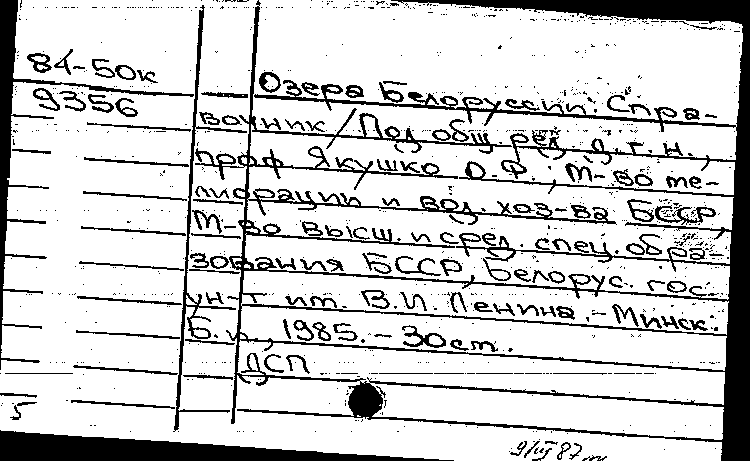 84-50к
9356
Озера Белоруссии: Спра-
вочник / Под общ. ред. д. г. н.,
проф. Якушко О.Ф.; М-во ме-
лиорации и вод. хоз-ва БССР,
М-во высш. и сред. спец. обра-
зования БССР, Белорус. гос.
ун-т им. В.И. Ленина. - Минск:
Б. и., 1985. - 30 см.
ДСП
5